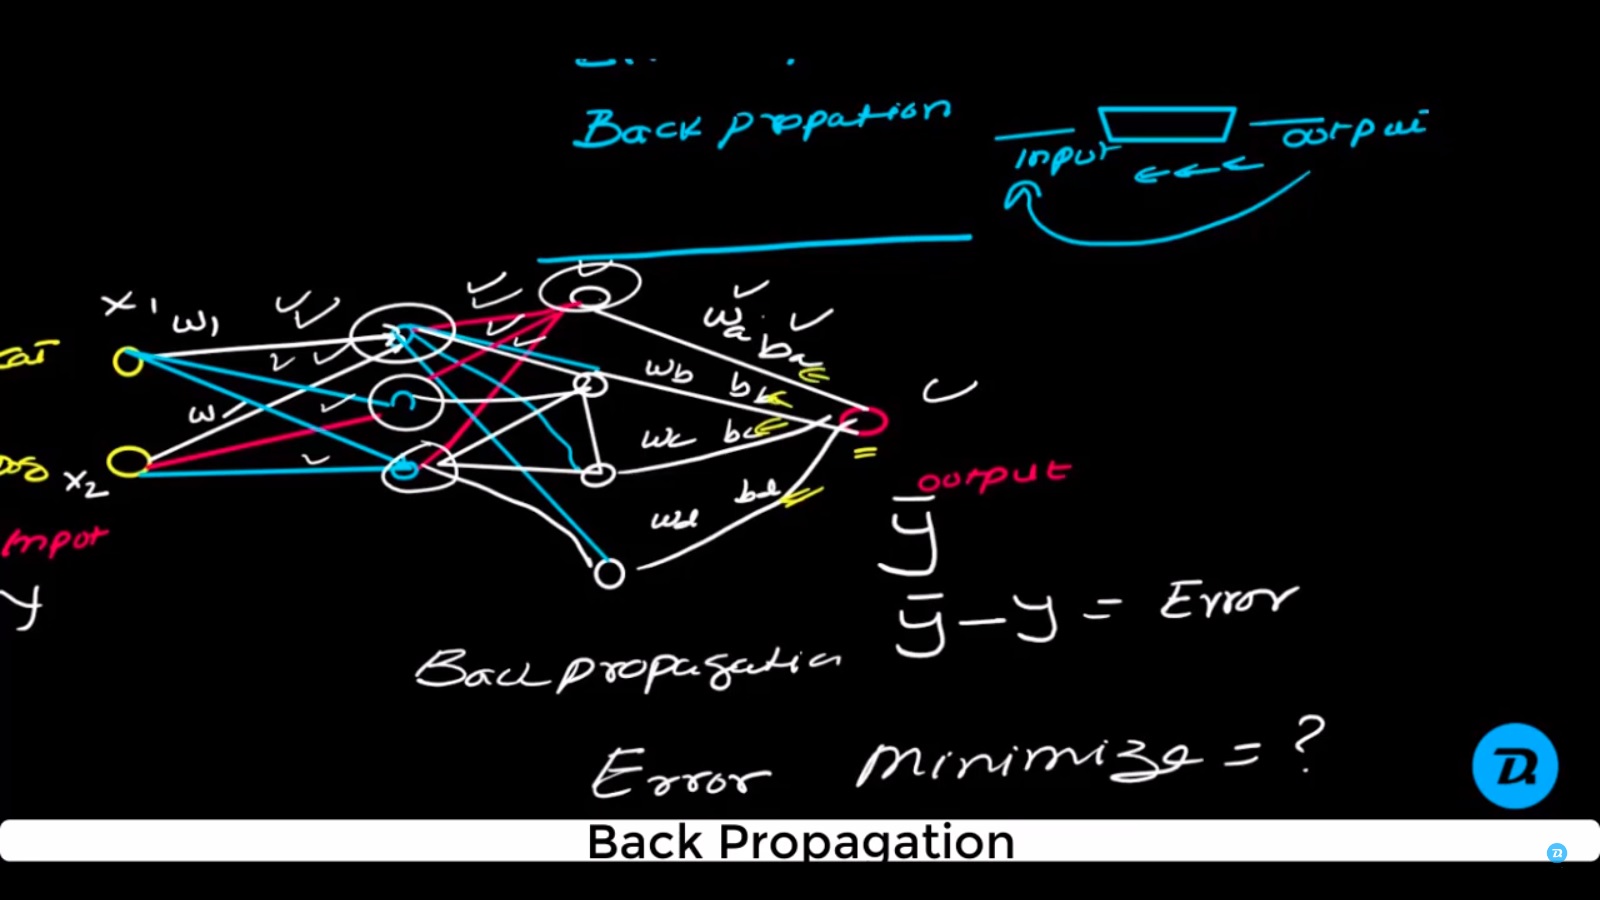 Back propation
input output
x1 w1
cat
w
Dog x2
wa ba
wb bb
wc bc
wd bd
Input
output
y
ȳ
ȳ - y = Error
Backpropagation
Error minimize = ?
Back Propagation